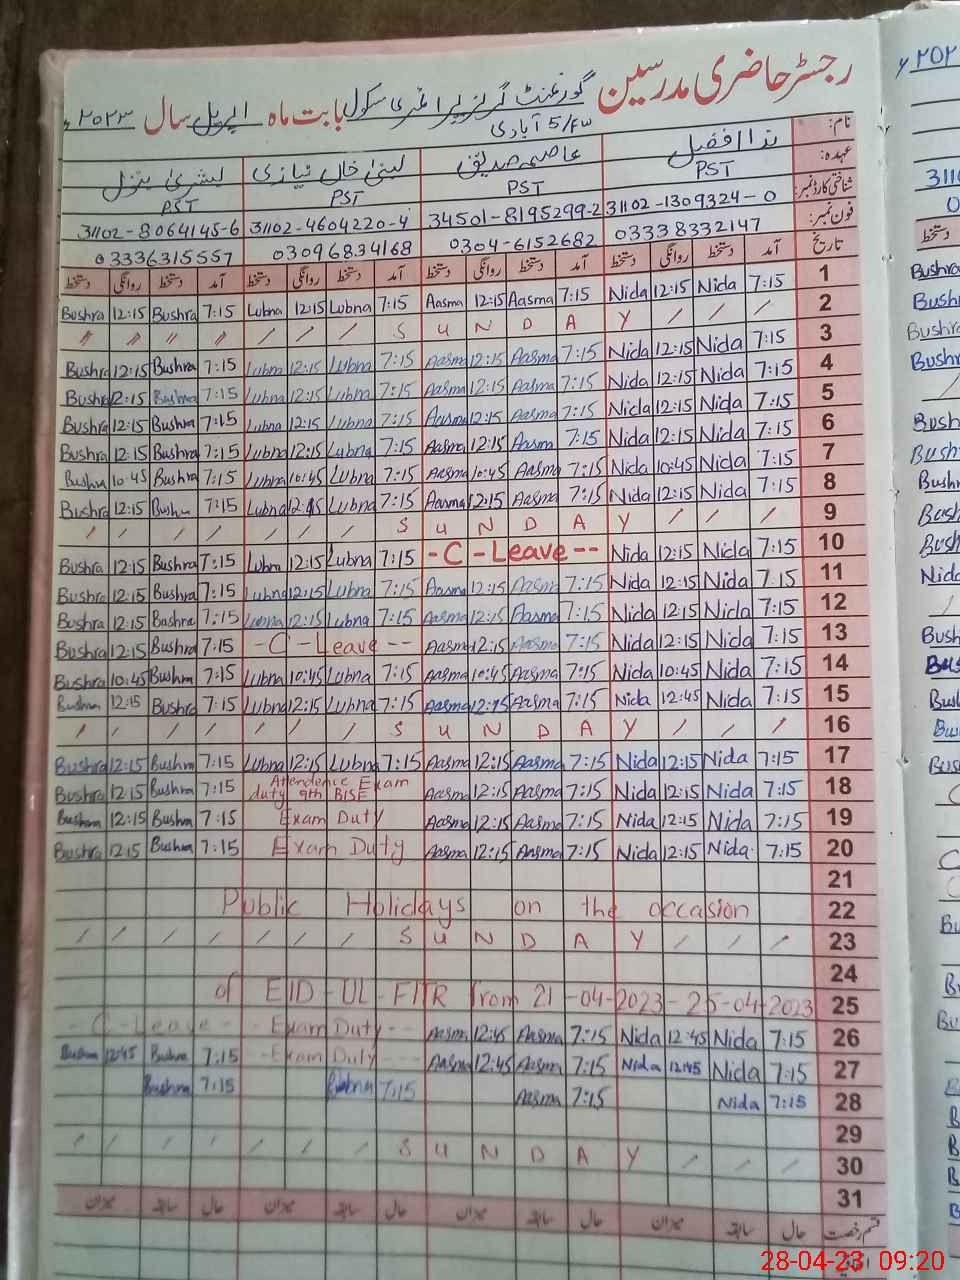 رجسٹر حاضری مدرسین گورنمنٹ گرلز پرائمری سکول بابت ماہ اپریل سال ۲۰۲۳ء
5/FW آبادی
نام:
عاصمہ صدیق لبنیٰ خان نیازی بشریٰ بتول
عہدہ: PST PST PST PST
شناختی کارڈ نمبر: 31102-1309324-0 34501-8195299-2 31102-4604220-4 31102-8064145-6
فون نمبر: 03338332147 0304-6152682 03096834168 03336315557
تاریخ آمد دستخط روانگی دستخط آمد دستخط روانگی دستخط آمد دستخط روانگی دستخط آمد دستخط روانگی دستخط
Bushra 12:15 Bushra 7:15 Lubna 12:15 Lubna 7:15 Aasma 12:15 Aasma 7:15 Nida 12:15 Nida 7:15 1
" " " " / / / S U N D A Y / / / 2
Bushra 12:15 Bushra 7:15 Lubna 12:15 Lubna 7:15 Aasma 12:15 Aasma 7:15 Nida 12:15 Nida 7:15 3
Bushra 12:15 Bushra 7:15 Lubna 12:15 Lubna 7:15 Aasma 12:15 Aasma 7:15 Nida 12:15 Nida 7:15 4
Bushra 12:15 Bushra 7:15 Lubna 12:15 Lubna 7:15 Aasma 12:15 Aasma 7:15 Nida 12:15 Nida 7:15 5
Bushra 12:15 Bushra 7:15 Lubna 12:15 Lubna 7:15 Aasma 12:15 Aasma 7:15 Nida 12:15 Nida 7:15 6
Bushra 10:45 Bushra 7:15 Lubna 10:45 Lubna 7:15 Aasma 10:45 Aasma 7:15 Nida 10:45 Nida 7:15 7
Bushra 12:15 Bushra 7:15 Lubna 12:15 Lubna 7:15 Aasma 12:15 Aasma 7:15 Nida 12:15 Nida 7:15 8
/ / / / / / / S U N D A Y / / / 9
Bushra 12:15 Bushra 7:15 Lubna 12:15 Lubna 7:15 - C - Leave - - Nida 12:15 Nida 7:15 10
Bushra 12:15 Bushra 7:15 Lubna 12:15 Lubna 7:15 Aasma 12:15 Aasma 7:15 Nida 12:15 Nida 7:15 11
Bushra 12:15 Bashra 7:15 Lubna 12:15 Lubna 7:15 Aasma 12:15 Aasma 7:15 Nida 12:15 Nida 7:15 12
Bushra 12:15 Bushra 7:15 - C - Leave - - Aasma 12:15 Aasma 7:15 Nida 12:15 Nida 7:15 13
Bushra 10:45 Bushra 7:15 Lubna 10:45 Lubna 7:15 Aasma 10:45 Aasma 7:15 Nida 10:45 Nida 7:15 14
Bushra 12:15 Bushra 7:15 Lubna 12:15 Lubna 7:15 Aasma 12:15 Aasma 7:15 Nida 12:45 Nida 7:15 15
/ / / / / / / S U N D A Y / / / 16
Bushra 12:15 Bushra 7:15 Lubna 12:15 Lubna 7:15 Aasma 12:15 Aasma 7:15 Nida 12:15 Nida 7:15 17
Bushra 12:15 Bushra 7:15 Attendence Exam duty 9th BISE Aasma 12:15 Aasma 7:15 Nida 12:15 Nida 7:15 18
Bushra 12:15 Bushra 7:15 Exam Duty Aasma 12:15 Aasma 7:15 Nida 12:15 Nida 7:15 19
Bushra 12:15 Bushra 7:15 Exam Duty Aasma 12:15 Aasma 7:15 Nida 12:15 Nida 7:15 20
21
Public Holidays on the occasion 22
/ / / / / / / S U N D A Y / / / 23
24
of EID-UL-FITR from 21-04-2023 - 25-04-2023 25
- C - Leave - - Exam Duty - - Aasma 12:45 Aasma 7:15 Nida 12:45 Nida 7:15 26
Bushra 12:45 Bushra 7:15 - - Exam Duty - - - Aasma 12:45 Aasma 7:15 Nida 12:45 Nida 7:15 27
Bushra 7:15 Lubna 7:15 Aasma 7:15 Nida 7:15 28
29
/ / / / / / S U N D A Y / / / 30
31
قسم رخصت حال سابقہ میزان حال سابقہ میزان حال سابقہ میزان حال سابقہ میزان
28-04-23 09:20